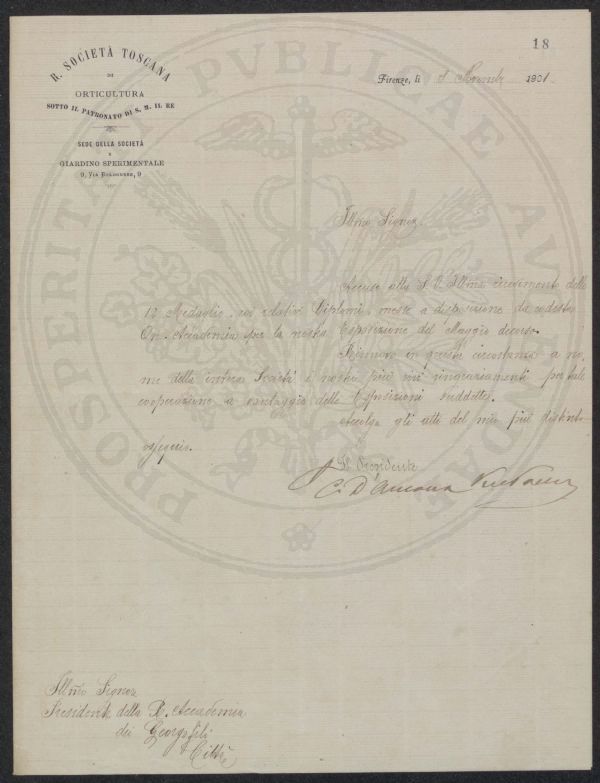 18
R. SOCIETÀ TOSCANA
DI
ORTICULTURA
SOTTO IL PATRONATO DI S. M. IL RE
SEDE DELLA SOCIETÀ
E
GIARDINO SPERIMENTALE
9, Via Bolognese, 9
Firenze, li 1901
Illmo Signor
Accuso alla S. V. Illma ricevimento delle
12 Medaglie coi relativi Diplomi, messe a disposizione da codesta
On. Accademia per la nostra Esposizione del Maggio decorso.
Rinnovo in questa circostanza a no-
me della intera Società i nostri più vivi ringraziamenti per tale
cooperazione a vantaggio delle Esposizioni suddette.
Accolga gli atti del mio più distinto
ossequio.
Il Presidente
C. D'Ancona
Illmo Signor
Presidente della R. Accademia
dei Georgofili
Città
PROSPERITATI PVBLICAE AVGENDAE